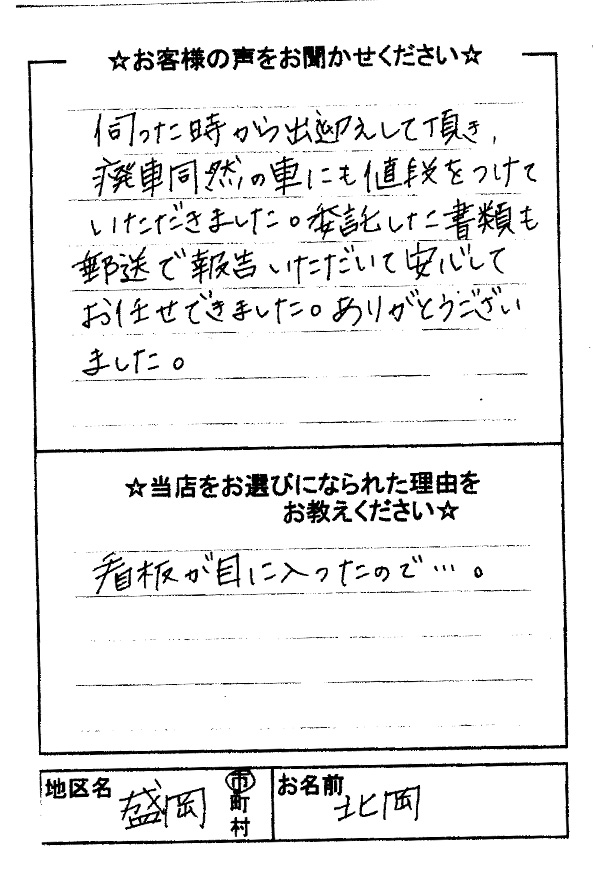 ☆お客様の声をお聞かせください☆
伺った時から出迎えして頂き、
廃車同然の車にも値段をつけて
いただきました。委託した書類も
郵送で報告いただいて安心して
お任せできました。ありがとうござい
ました。
☆当店をお選びになられた理由を
お教えください☆
看板が目に入ったので…。
地区名 盛岡 市町村 お名前 北岡